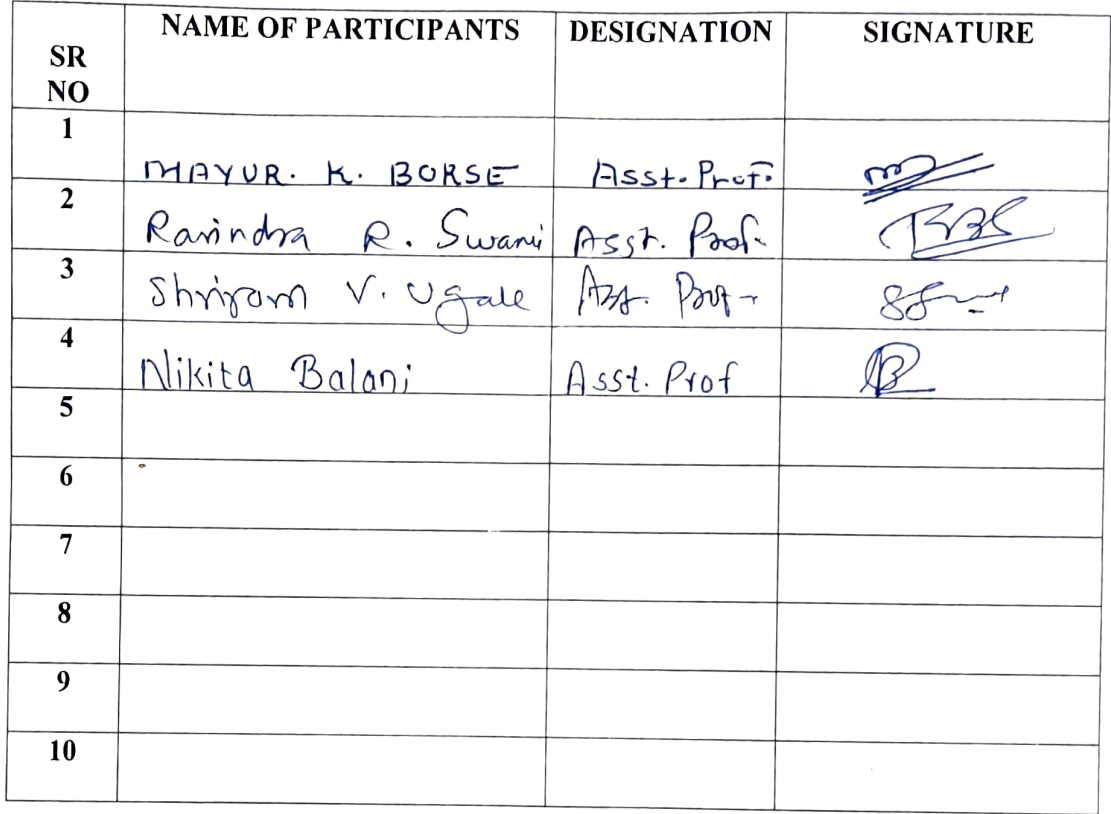 SR NO NAME OF PARTICIPANTS DESIGNATION SIGNATURE
1 MAYUR. K. BORSE Asst. Prof.
2 Ravindra R. Swami Asst. Prof.
3 Shriram V. Ugale Asst. Prof.
4 Nikita Balani Asst. Prof
5
6
7
8
9
10